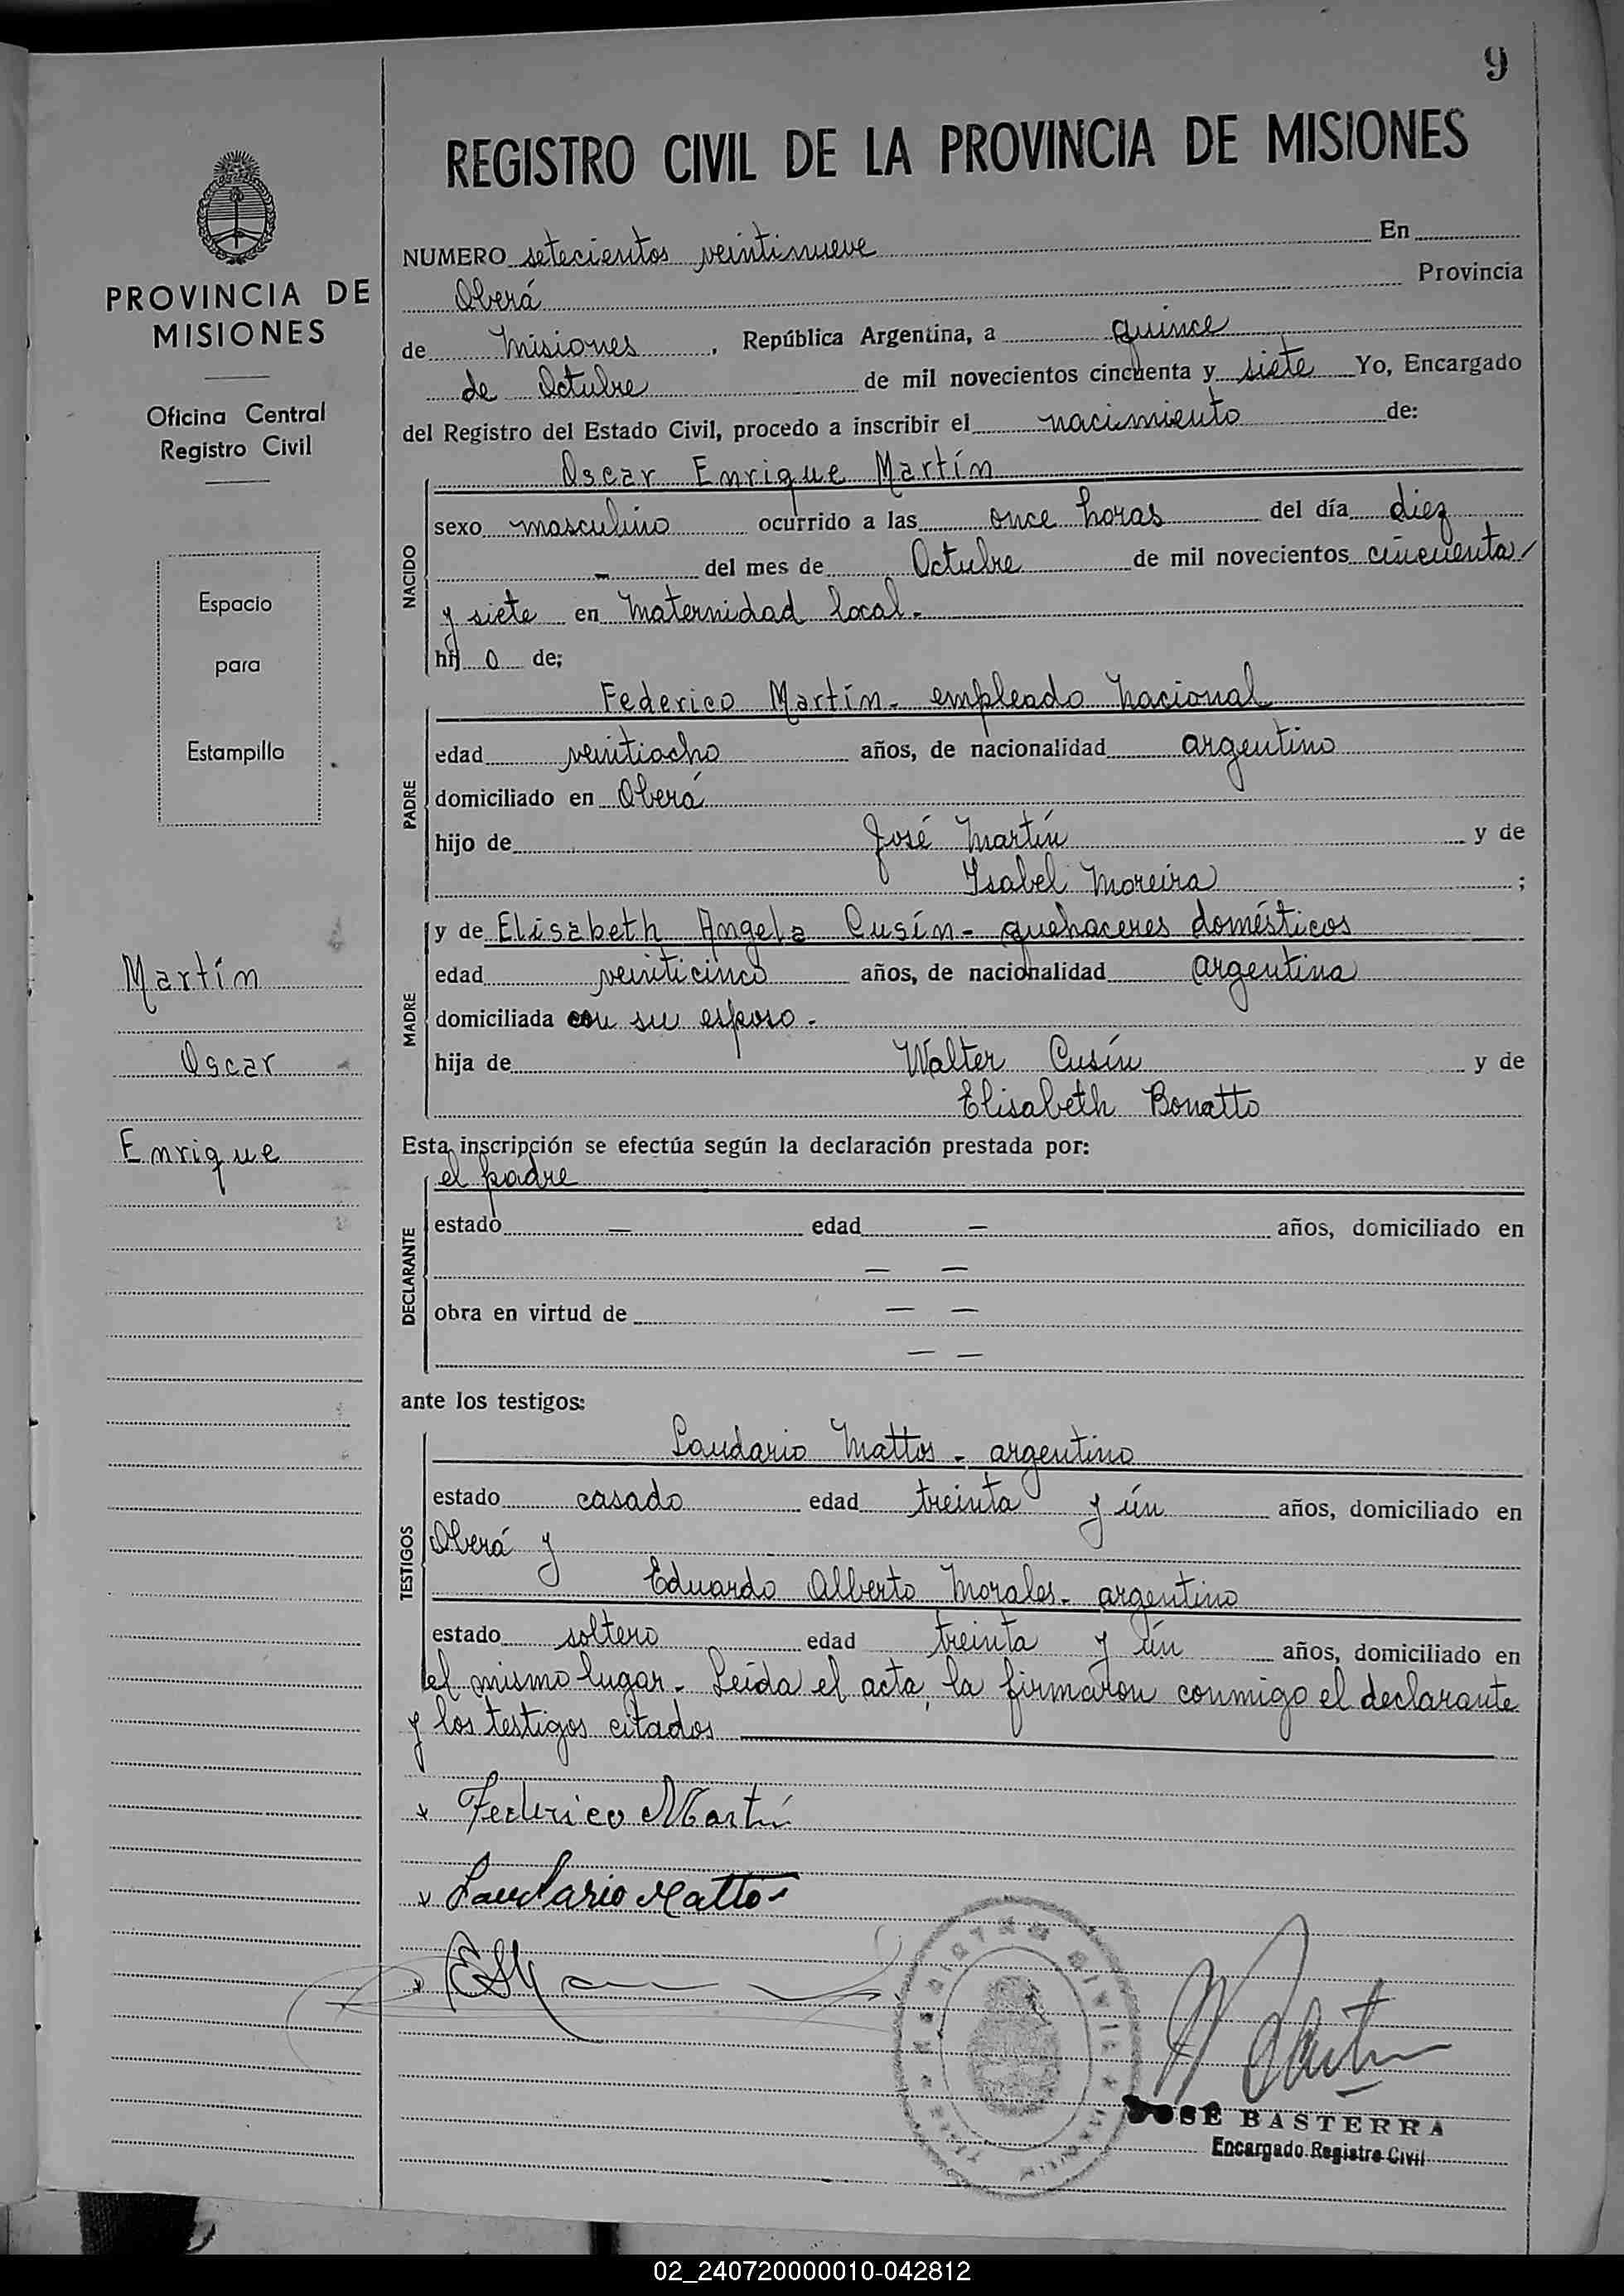 9
REGISTRO CIVIL DE LA PROVINCIA DE MISIONES
PROVINCIA DE
MISIONES
Oficina Central
Registro Civil
Espacio
para
Estampilla
Martín
Oscar
Enrique
NUMERO setecientos veintinueve En
Oberá Provincia
de Misiones, República Argentina, a quince
de Octubre de mil novecientos cincuenta y siete Yo, Encargado
del Registro del Estado Civil, procedo a inscribir el nacimiento de:
NACIDO
Oscar Enrique Martín
sexo masculino ocurrido a las once horas del día diez
- del mes de Octubre de mil novecientos cincuenta
y siete en Maternidad local.-
hij o de;
PADRE
Federico Martín - empleado Nacional
edad veintiocho años, de nacionalidad argentino
domiciliado en Oberá
hijo de José Martín y de
Ysabel Moreira ;
MADRE
y de Elisabeth Angela Cusín - quehaceres domésticos
edad veinticinco años, de nacionalidad argentina
domiciliada con su esposo -
hija de Walter Cusín y de
Elisabeth Bonatto
Esta inscripción se efectúa según la declaración prestada por:
DECLARANTE
el padre
estado — edad — años, domiciliado en
— —
obra en virtud de — —
— —
ante los testigos:
TESTIGOS
Laudario Mattos - argentino
estado casado edad treinta y ún años, domiciliado en
Oberá y
Eduardo Alberto Morales - argentino
estado soltero edad treinta y ún años, domiciliado en
el mismo lugar - Leida el acta, la firmaron conmigo el declarante
y los testigos citados
x Federico Martín
x Laudario Mattos
JOSE BASTERRA
Encargado Registro Civil
02_240720000010-042812